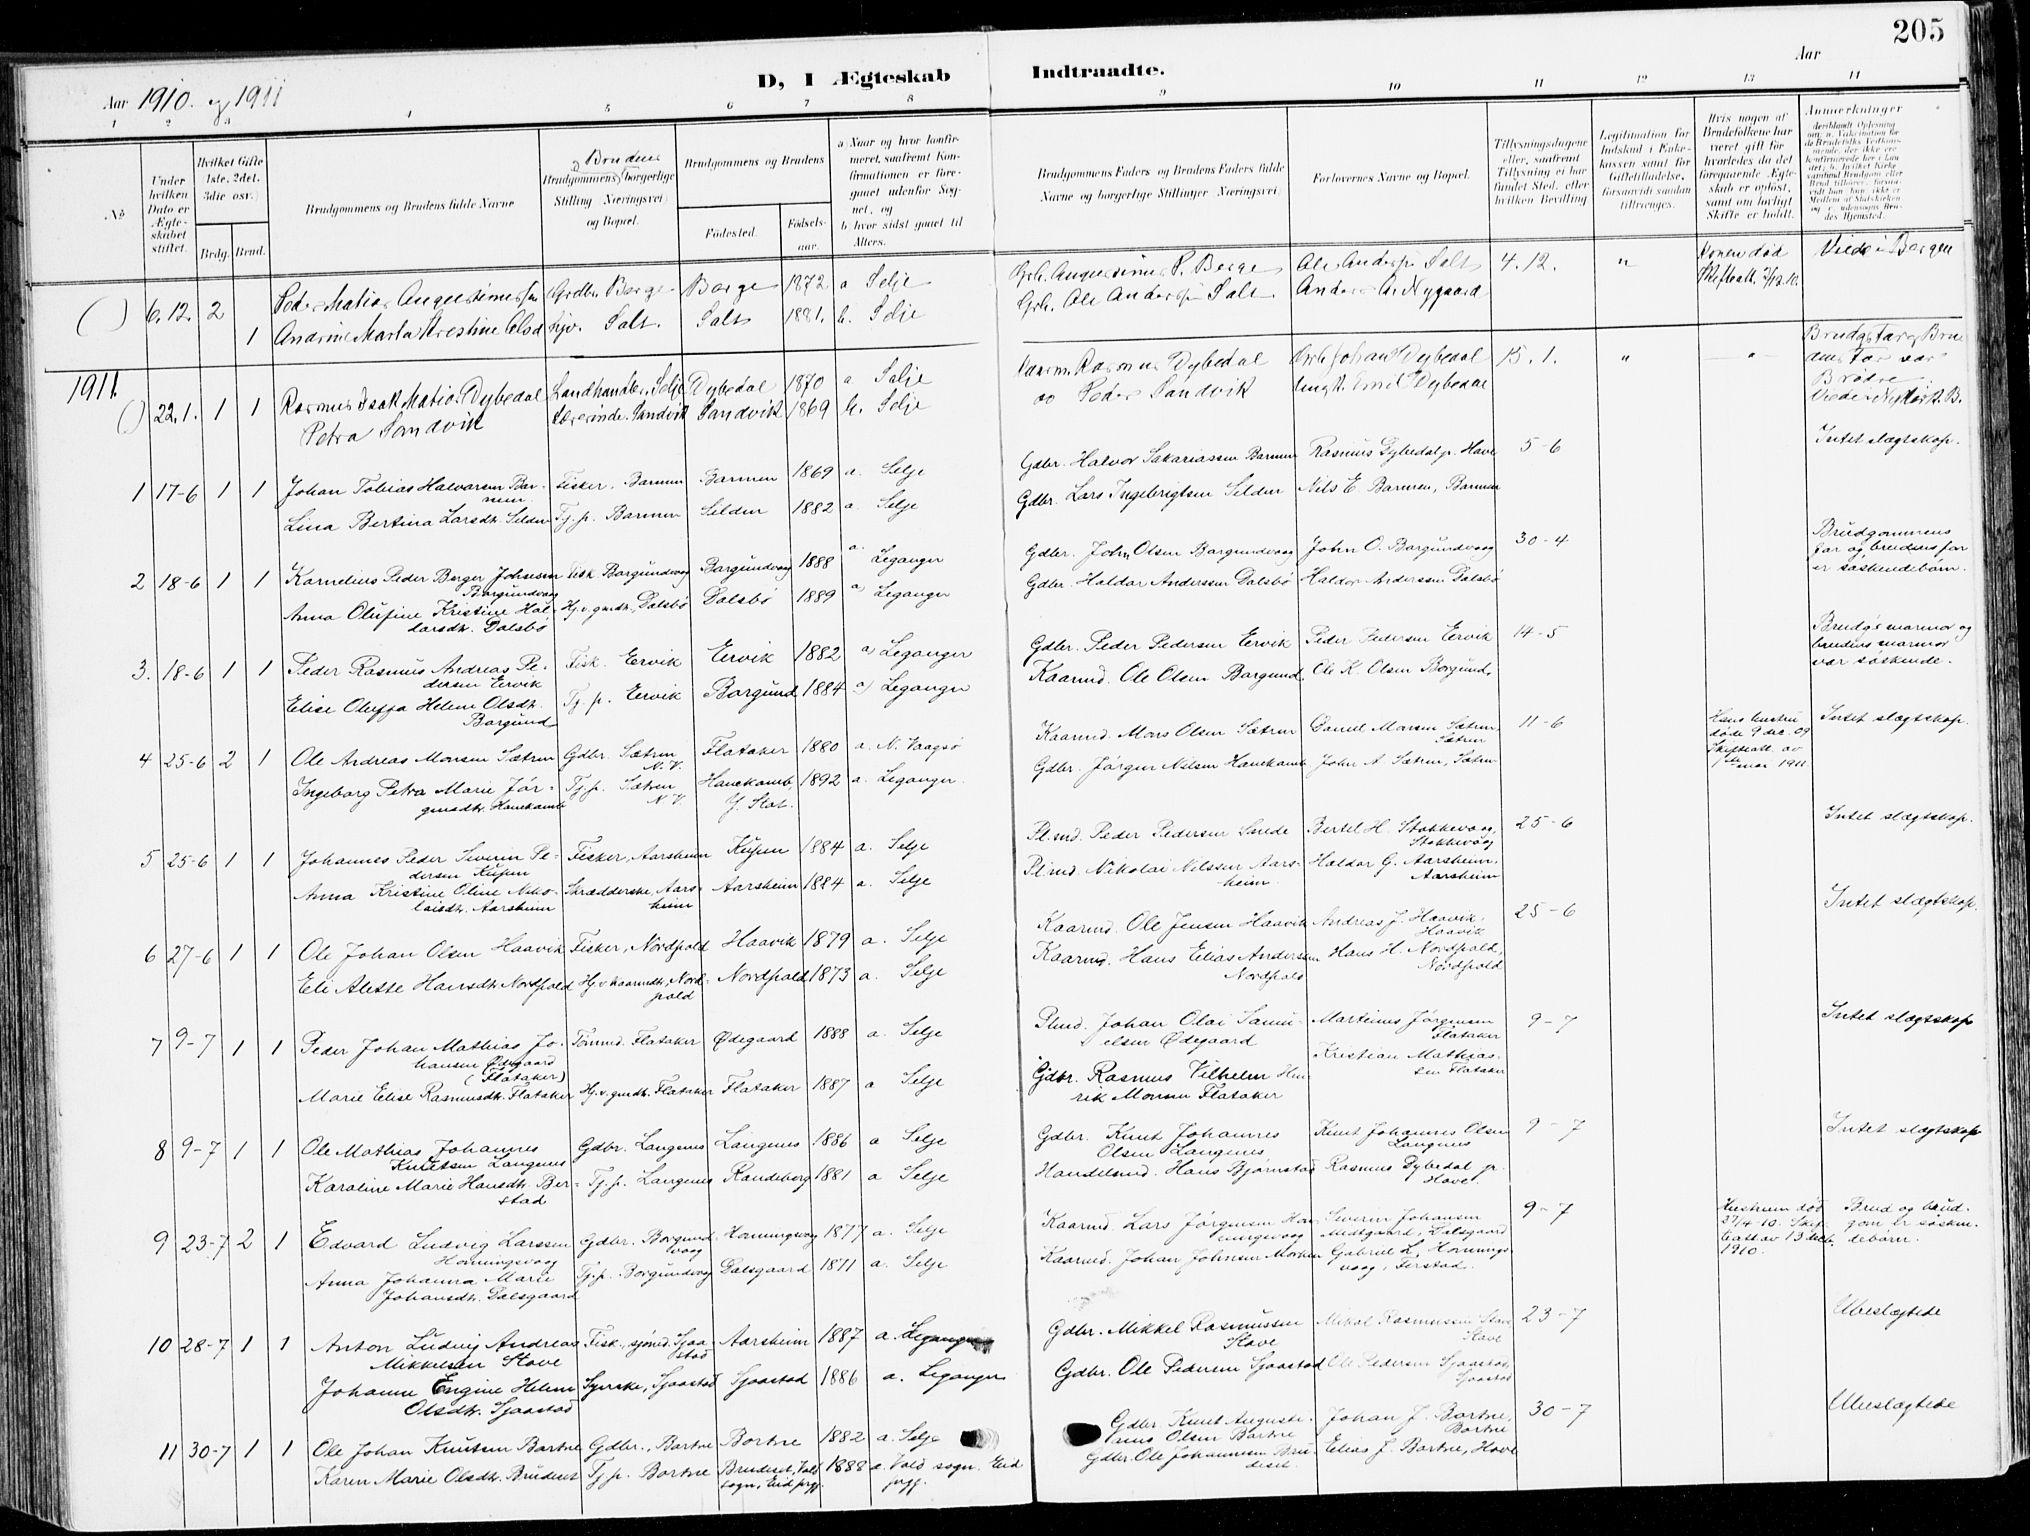 205
Aar 1910 og 1911
D, I Ægteskab Indtraadte.
Aar
1 2 3 4 5 6 7 8 9 10 11 12 13 14
No
Under hvilken Dato er Ægteskabet stiftet.
Hvilket Gifte 1ste, 2det, 3die osv.)
Brdg. Brud.
Brudgommens og Brudens fulde Navne
Brudens
Brudgommens borgerlige Stilling Næringsvei og Bopæl.
Brudgommens og Brudens
Fødested.
Fødselsaar.
a Naar og hvor konfirmeret, saafremt Konfirmationen er foregaaet udenfor Sognet, og
b hvor sidst gaaet til Alters.
Brudgommens Faders og Brudens Faders fulde Navne og borgerlige Stillinger Næringsvei.
Forlovernes Navne og Bopæl.
Tillysningsdagene eller, saafremt Tillysning ei har fundet Sted, efter hvilken Bevilling
Legitimation for Indskud i Enkekassen samt for Giftetilladelse, forsaavidt saadan tiltrænges.
Hvis nogen af Brudefolkene har været gift før hvorledes da det foregaaende Ægteskab er opløst, samt om lovligt Skifte er holdt.
Anmerkninger
6.12. 2 Peder Matias Augustinusen Grdbr. Barge Barge 1872 a Selje Grb. Augustinus P. Berge Ole Anders Salt 4.12. " Konen død Viede i Bergen
1 Andrine Marta Kristine Olsd Hjv. Salt. Salt 1881. b. Selje Grb. Ole Anders Salt. Anders A. Nygaard
1911.
22.1. 1 1 Rasmus Isak Matias Dybedal Landhandler, Selje Dybedal 1870 a Selje Rasmus Dybedal Johan Dybedal 15.1. " " Brudg. Far og Brudens Far var Brødre
Petra Sandvik Lærerinde. Sandvik Sandvik 1869 b. Selje Peder Sandvik Emil Dybedal
1 17-6 1 1 Johan Tobias Halvorsen Barmen Fisker. Barmen Barmen 1869 a. Selje Gdbr. Halvor Sakariassen Barmen Rasmus Dybedal jr. Hove 5-6 Intet slægtskap.
Lina Bertina Larsdtr. Selden Tj.p. Barmen Selden 1882 a. Selje Gdbr. Lars Ingebrigtsen Selden Nils E. Barmen, Barmen
2 18-6 1 1 Kornelius Peder Berger Johnsen Borgundvaag Fisk. Borgundvaag Borgundvaag 1888 a. Leganger Gdbr. John Olsen Borgundvaag John O. Borgundvaag 30-4 Brudgommens far og brudens far er søskendebørn.
Anna Olufine Kristine Haldorsdtr. Dalsbø Hj.v. gmdtr. Dalsbø Dalsbø 1889 a) Leganger Gdbr. Haldor Anderssen Dalsbø Haldor Anderssen Dalsbø
3. 18-6 1 1 Peder Rasmus Andreas Pedersen Ervik Fisk. Ervik Ervik 1882 a) Leganger Gdbr. Peder Pedersen Ervik Peder Pedersen Ervik 14-5 Brudg's mormor og brudens mormor var søskende.
Elise Oluffa Helene Olsdtr. Borgund Tj.p. Ervik Borgund 1884 a) Leganger Kaarmd. Ole Olsen Borgund Ole K. Olsen Borgund.
4 25-6 2 1 Ole Andreas Monsen Sætren Gdbr. Sætren N.V. Flataker 1880 a. N. Vaagsø Kaarmd. Mons Olsen Sætren Daniel Monsen Sætren, Sætren 11-6 Hans hustru døde 9 dec. 09 Skifteatt. av mai 1911. Intet slægtskap.
Ingeborg Petra Marie Jørgensdtr. Hanekamb Tj.p. Sætren N.V. Hanekamb, Y. Stat. 1892 a. Leganger. Gdbr. Jørgen Nilsen Hanekamb John A. Sætren, Sætren
5 25-6 1 1 Johannes Peder Severin Pedersen Kupen Fisker, Aarsheim Kupen 1884 a. Selje Pl.md. Peder Pedersen Smede Bertel H. Stokkevaag, Stokkevaag 25-6 Intet slægtskap.
Anna Kristine Oline Nikolaisdtr. Aarsheim Skrædderske, Aarsheim Aarsheim 1884 a. Selje Pl.md. Nikolai Nilssen Aarsheim. Haldor G. Aarsheim, Aarsheim
6 27-6 1 1 Ole Johan Olsen Haavik Fisker, Nordpold Haavik 1879 a. Selje Kaarmd. Ole Jensen Haavik Andreas J. Haavik, Haavik 25-6 Intet slægtskap.
Eli Alette Hansdtr. Nordpold Hj.v. kaarmdtr., Nordpold Nordpold 1873 a. Selje Kaarmd. Hans Elias Anderssen Nordpold Hans H. Nordpold, Nordpold
7 9-7 1 1 Peder Johan Mathias Johansen Ødegaard (Flataker) Tømmd. Flataker Ødegaard 1888 a. Selje Plmd. Johan Olai Samuelsen Ødegaard Martinus Jørgensen Flataker 9-7 Intet slægtskap
Marie Elise Rasmusdtr. Flataker Hj.v. gmdtr. Flataker Flataker 1887 a Selje Gdbr. Rasmus Vilhelm Henrik Monsen Flataker Kristian Mathiassen Flataker
8 9-7 1 1 Ole Mathias Johannes Knutsen Langenes Gdbr. Langenes Langenes 1886 a Selje Gdbr. Knut Johannes Olsen Langenes Knut Johannes Olsen Langenes 9-7 Intet slægtskap
Karoline Marie Hansdtr. Berstad Tj.p. Langenes Randeberg 1881 a Selje Handelsmd. Hans Bjørnstad Rasmus Dybedal jr. Hove.
9 23-7 2 1 Edvard Ludvig Larssen Horningsvaag Gdbr. Borgundvaag Horningsvaag 1877 a. Selje Kaarmd. Lars Jørgensen Horningsvaag Severin Johansen Midtgaard, Dalsgaard 9-7 Hustruen død 27/4-10. Skifteatt av 13 decb. 1910. Brud og brudgom er søskendebørn.
Anna Johanna Marie Johansdtr. Dalsgaard Tj.p. Borgundvaag Dalsgaard 1871 a. Selje Kaarmd. Johan Johnsen Gabriel L. Horningsvaag, Ferstad.
10 28-7 1 1 Anton Ludvig Andreas Mikkelsen Stave Fisk., sjømd. Sjaastad Aarsheim 1887 a. Leganger Gdbr. Mikkel Rasmussen Stave Mikal Rasmussen Stave Stave 23-7 Ubeslægtede
Johanne Engine Helene Olsdtr. Sjaastad Syerske, Sjaastad Sjaastad 1886 a. Leganger Gdbr. Ole Pedersen Sjaastad Ole Pedersen Sjaastad, Sjaastad
11 30-7 1 1 Ole Johan Knutsen Bortne Gdbr., Bortne Bortne 1882 a. Selje Gdbr. Knut Augustinus Olsen Bortne Johan J. Bortne, Bortne 30-7 Ubeslægtede
Karen Marie Olsdtr. Bruderet Tj.p. Bortne Bruderet, Vold sogn, Eid prgj. 1888 a. Vold sogn. Eid prgj. Gdbr. Ole Johannessen Elias J. Bortne, Hove